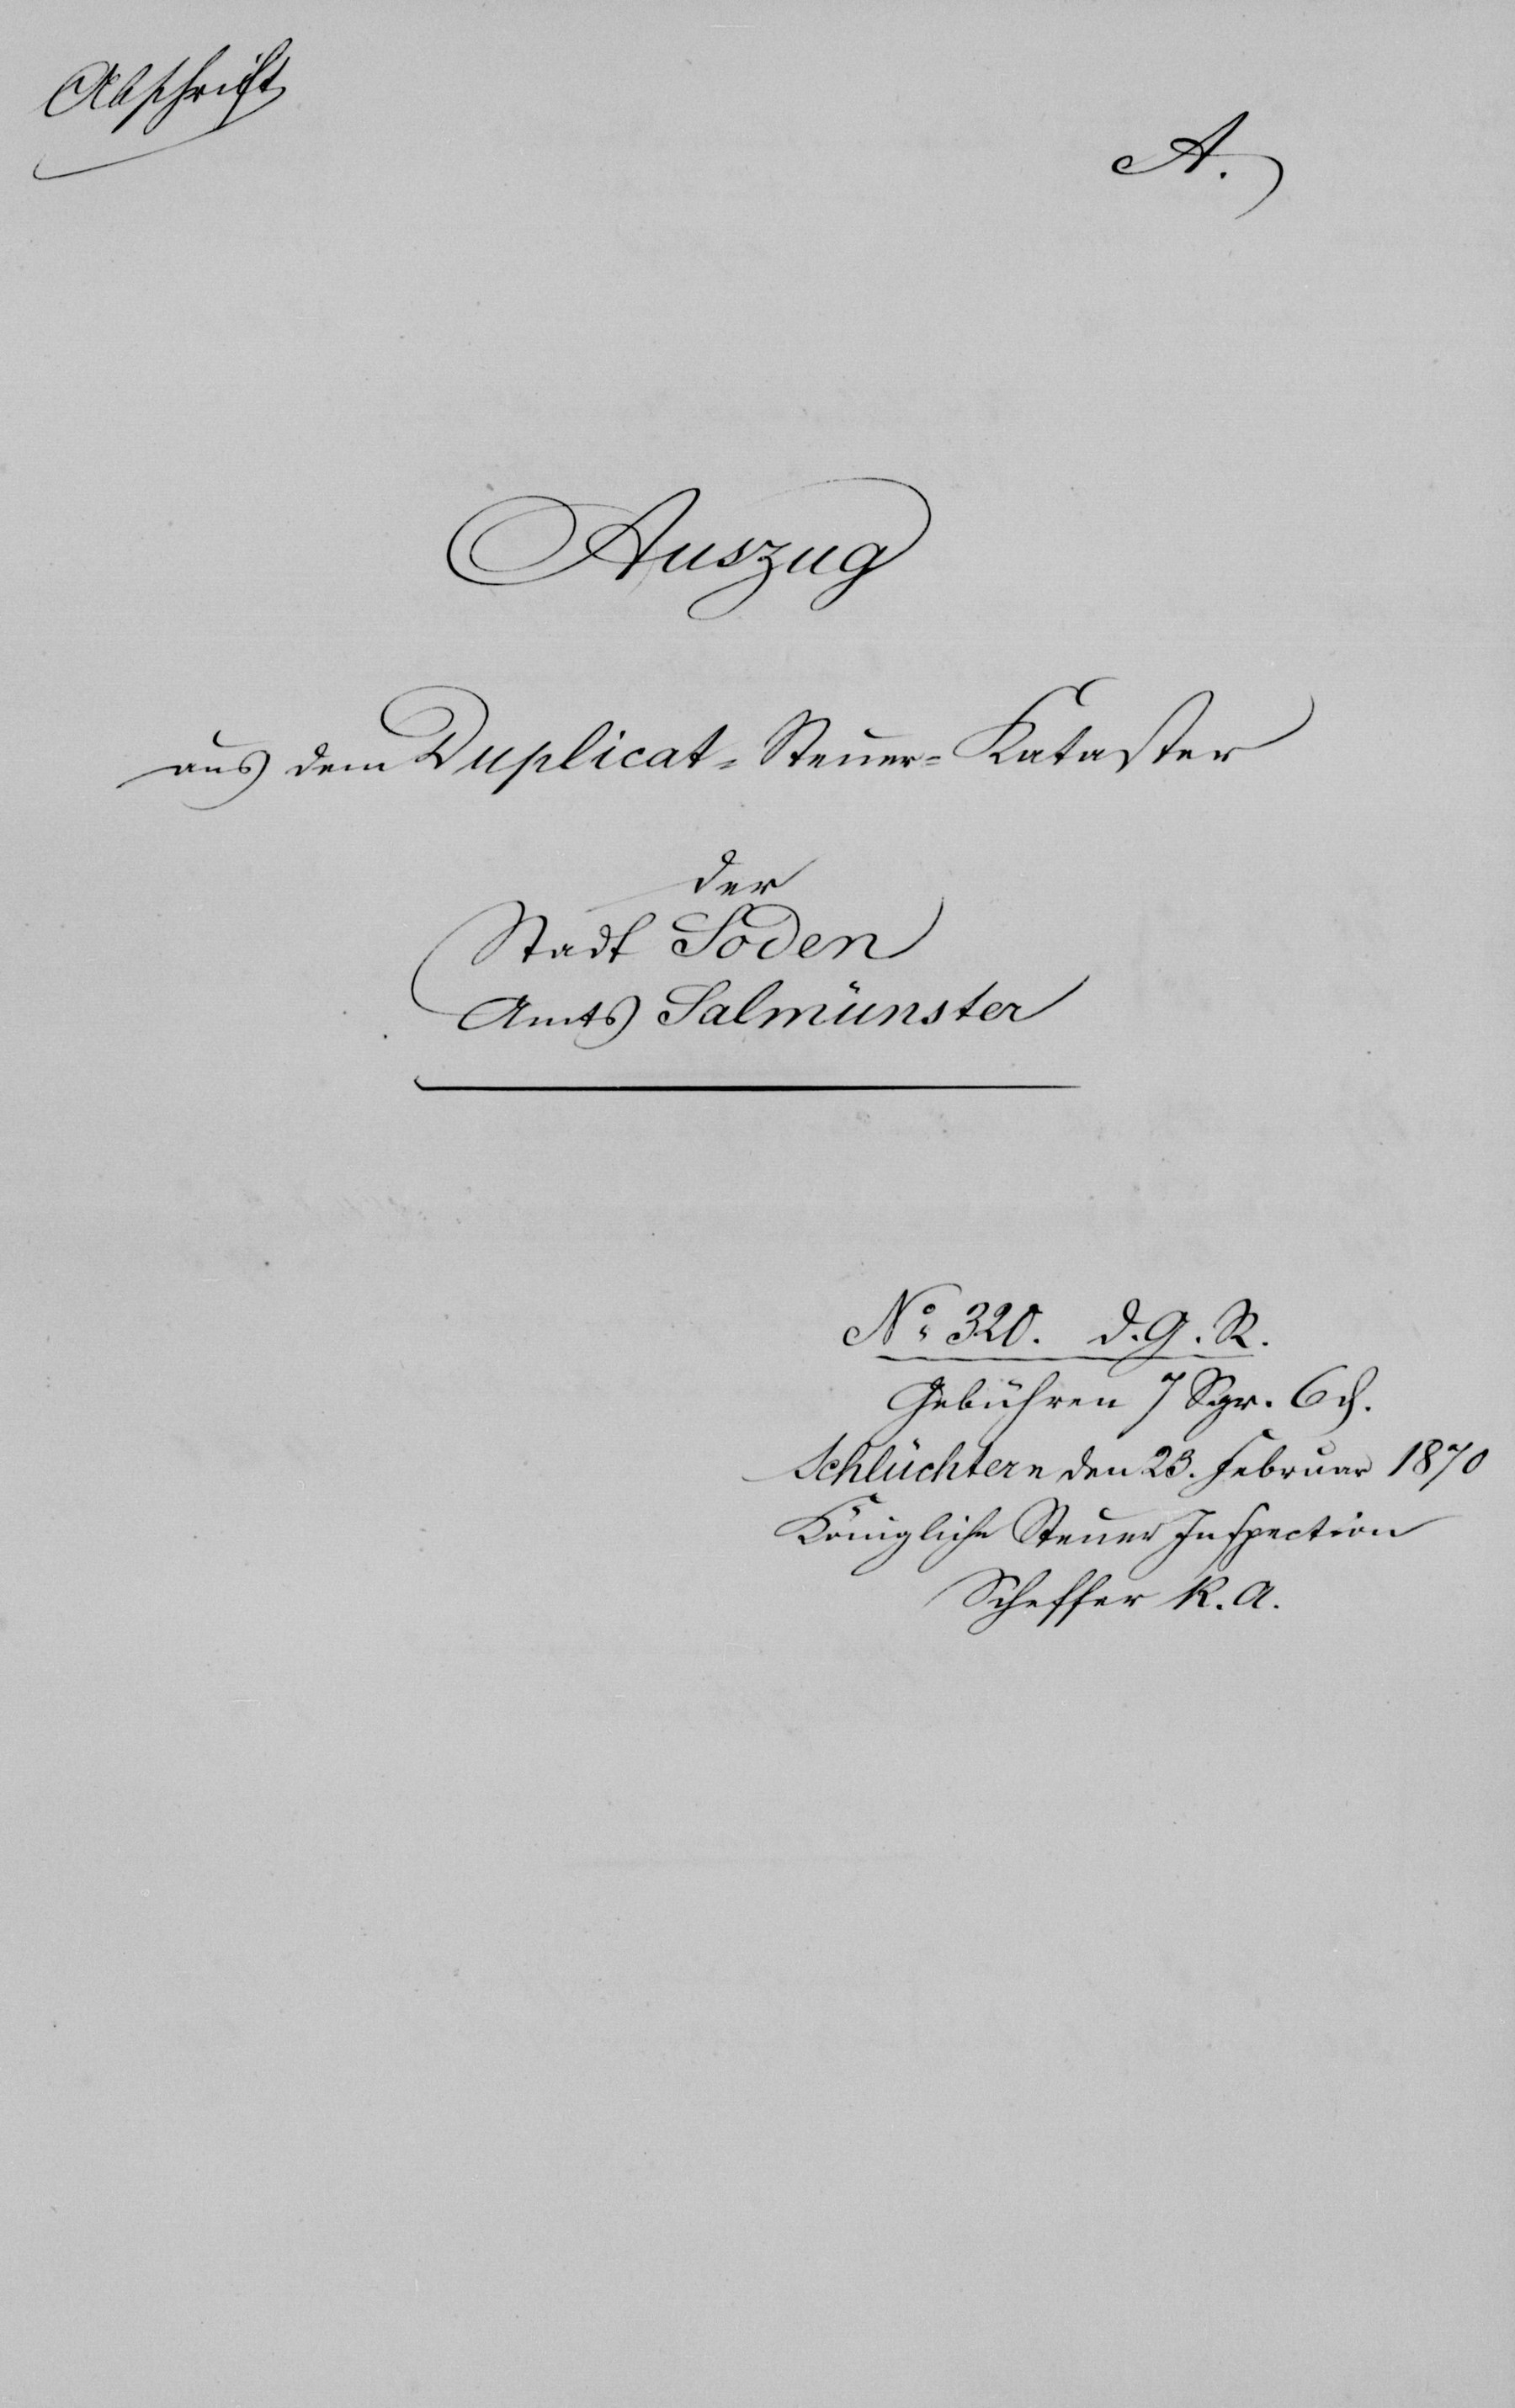 Abschrift
A.
Auszug
aus dem Duplicat-Steuer-Kataster
der
Stadt Soden
Amts Salmünster
No. 320. d. G. R.
Gebühren 7 Sgr. 6 d.
Schlüchtern den 23. Februar 1870
Königliche Steuer Inspection
Scheffer K. A.